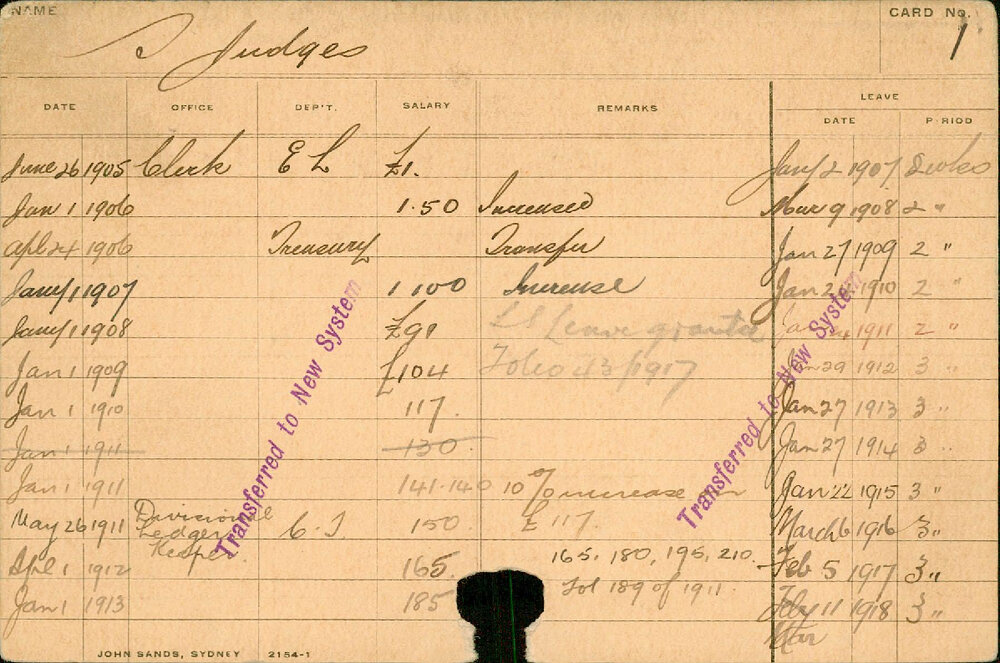 NAME
CARD No.
1
Judges
DATE OFFICE DEP'T. SALARY REMARKS LEAVE
DATE PERIOD
June 26 1905 Clerk E L £1. Jany 2 1907 2 wks
Jan 1 1906 1.50 Increased Mar 9 1908 2 "
Apl 24 1906 Treasury Transfer Jan 27 1909 2 "
Jany 1 1907 1 100 Increase Jan 1910 2 "
Jany 1 1908 £91 LS Leave granted 1911 2 "
Jan 1 1909 £104 Folio 43/1917 29 1912 3 "
Jan 1 1910 117. Jan 27 1913 3 "
Jan 1 1911 130. Jan 27 1914 3 "
Jan 1 1911 141.140 10 % increase on Jan 22 1915 3 "
May 26 1911 Divisional Ledger Keeper. C. J. 150 £117. March 6 1916 3 "
Apl 1 1912 165. 165, 180, 195, 210. Feb 5 1917 3 "
Jan 1 1913 185 Fol 189 of 1911. 11 1918 3 "
Mar
Transferred to New System
Transferred to New System
JOHN SANDS, SYDNEY 2154-1